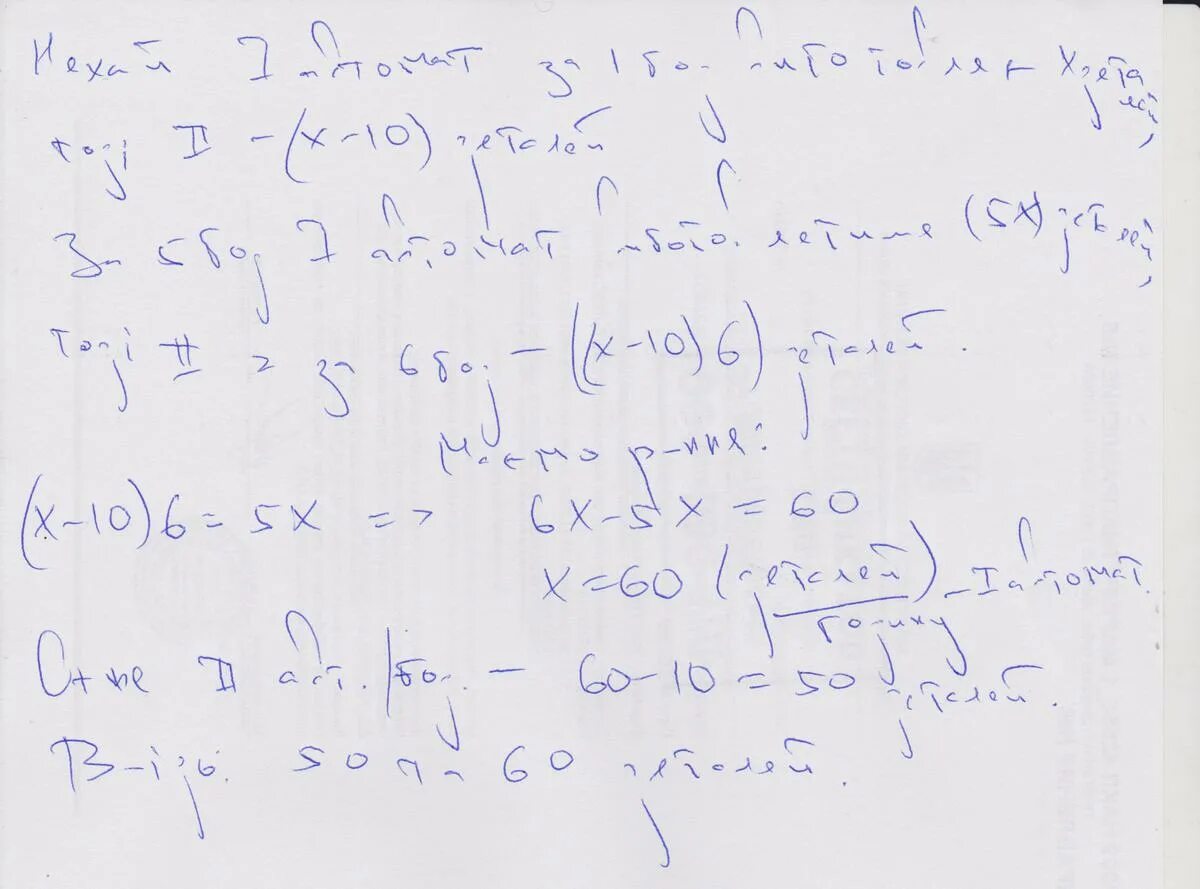 Нехай I автомат за 1 год виготовляє x деталей,
тоді II – (x–10) деталей
За 5 год I автомат виготовлятиме (5x) деталей,
тоді II за 6 год – ((x–10)6) деталей.
Маємо р-ння:
(x–10)6 = 5x => 6x–5x = 60
x = 60 (деталей/годину) – I автомат.
Отже II авт. /год. – 60–10 = 50 деталей.
В-ідь. 50 та 60 деталей.